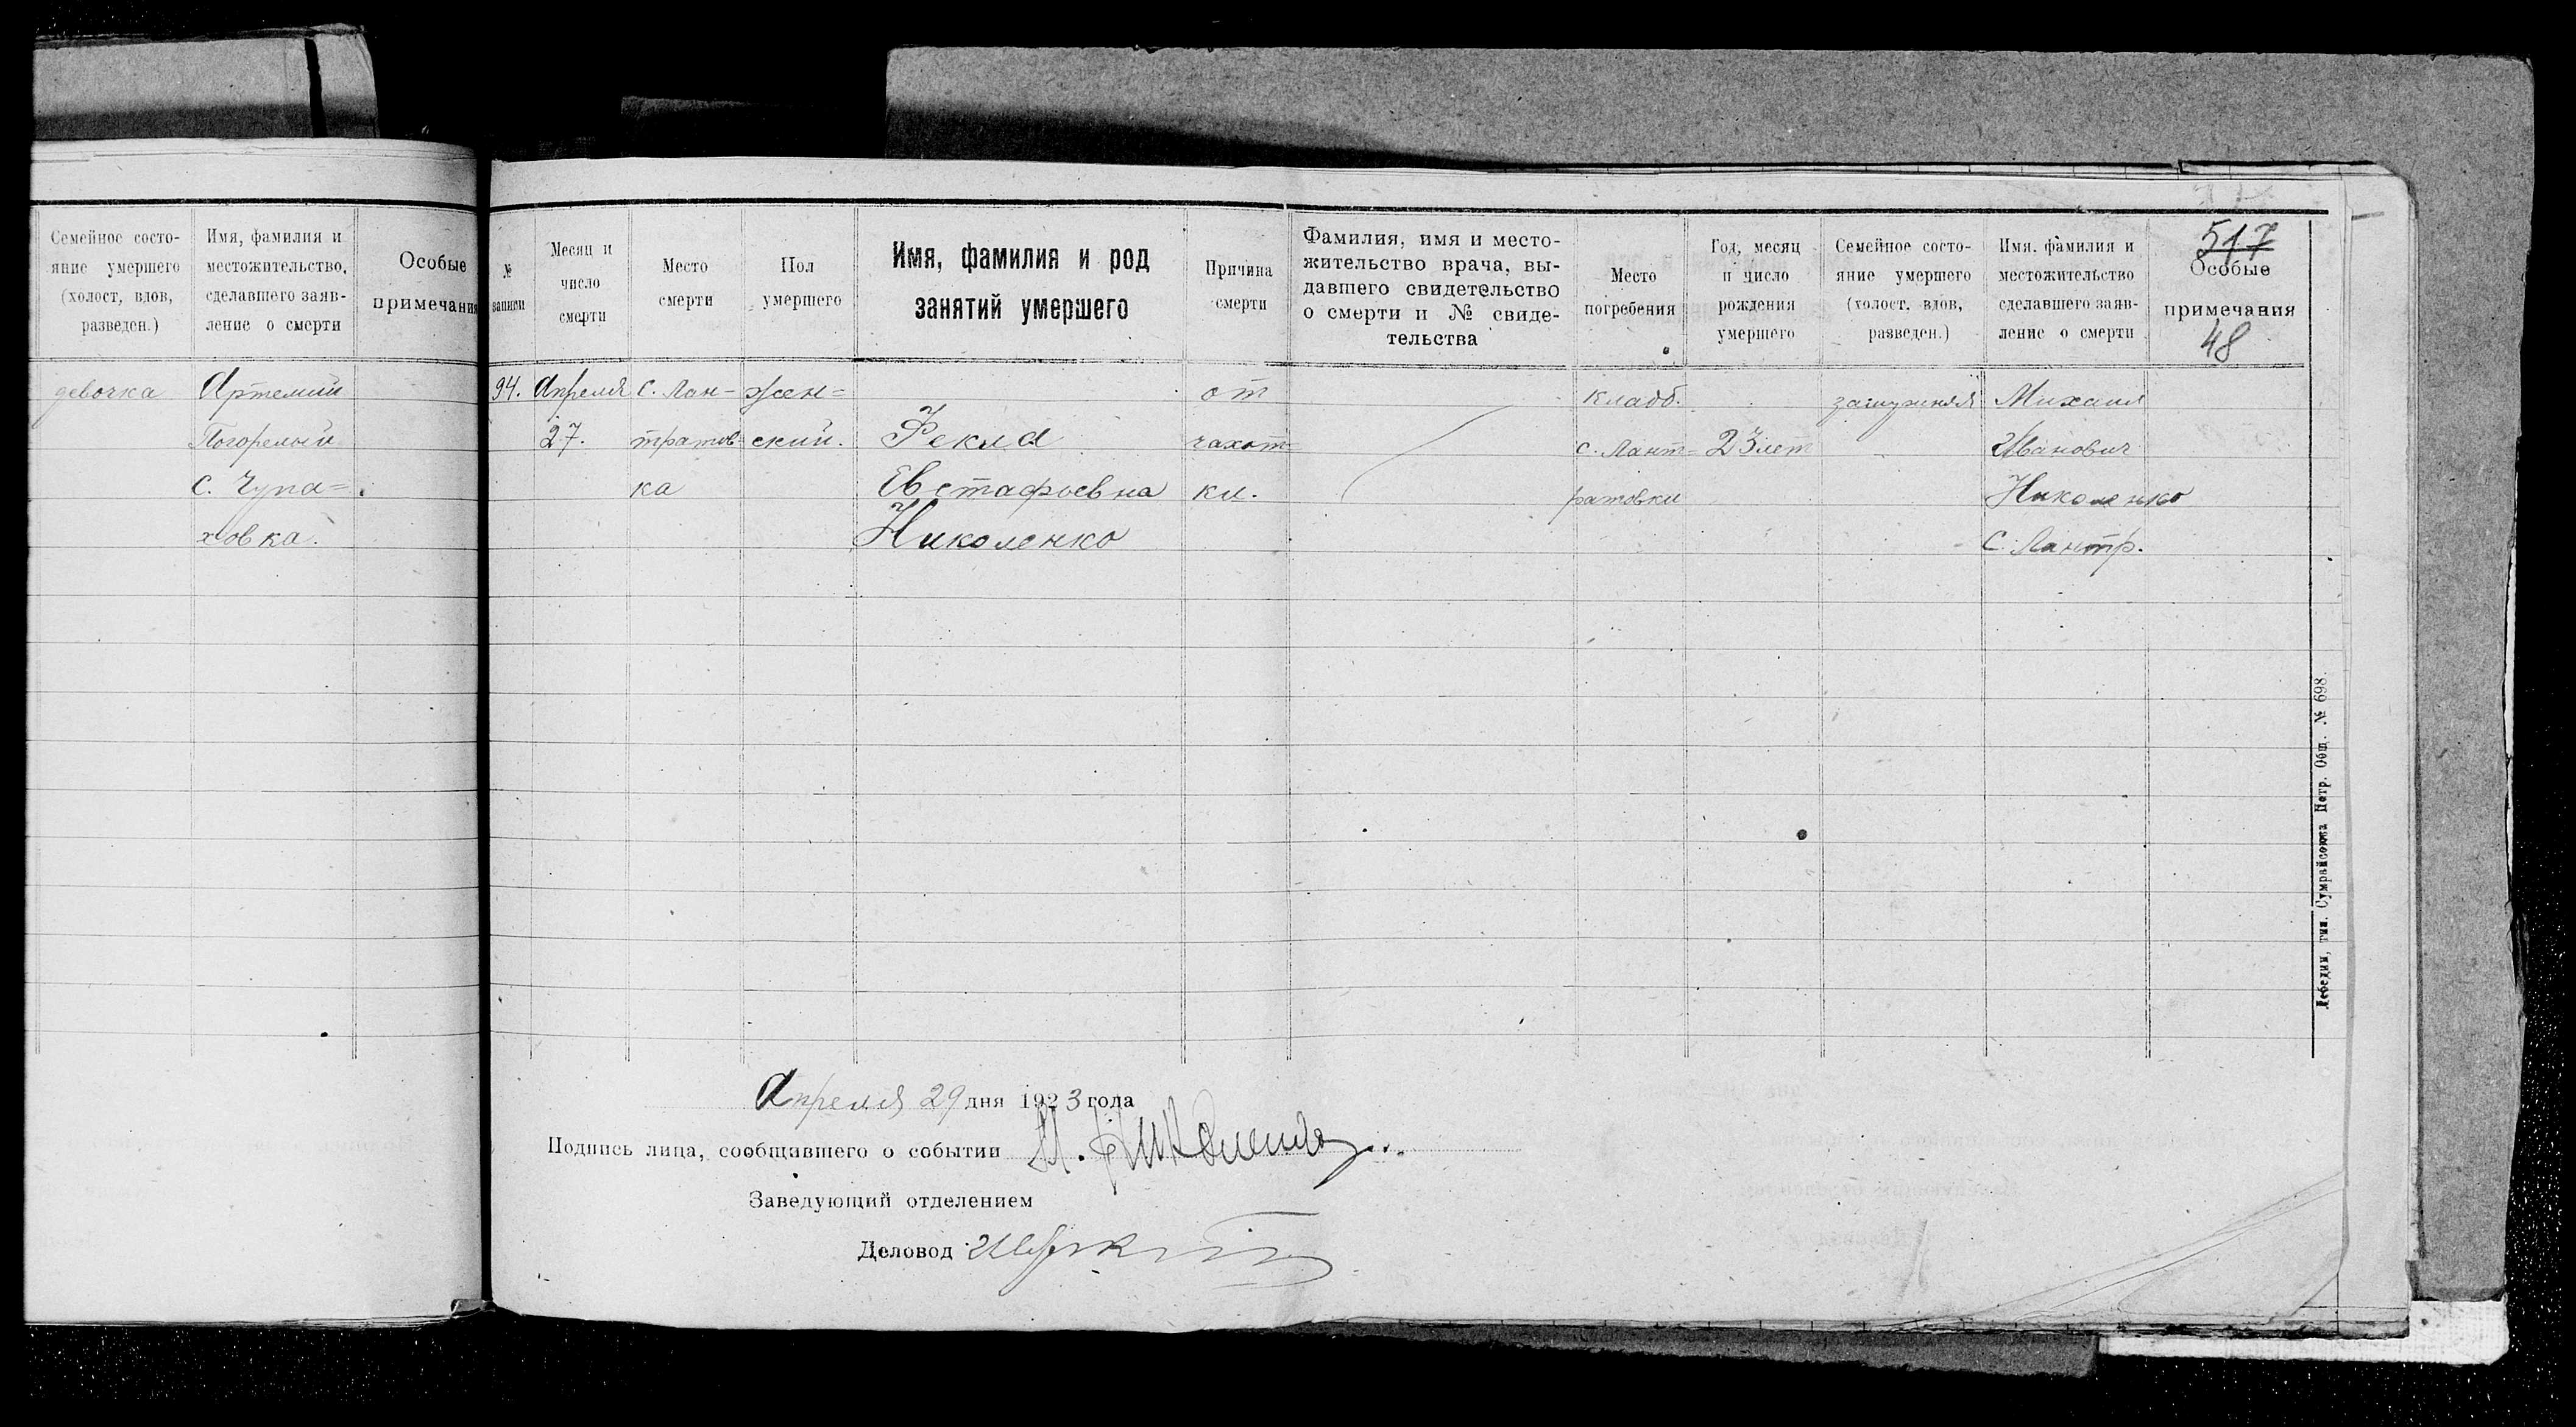 Семейное состо-
яние умершего
(холост, вдов,
разведен.)
Имя, фамилия и
местожительство,
сделавшего заяв-
ление о смерти
Особые
примечания
девочка
Артемий
Погорелый
с. Чупа=
ховка.
№
записи
Месяц и
число
смерти
Место
смерти
Пол
умершего
Имя, фамилия и род
занятий умершего
Причина
смерти
Фамилия, имя и место-
жительство врача, вы-
давшего свидетельство
о смерти и № свиде-
тельства
Место
погребения
Год, месяц
и число
рождения
умершего
Семейное состо-
яние умершего
(холост, вдов,
разведен.)
Имя, фамилия и
местожительство
сделавшего заяв-
ление о смерти
517
Особые
примечания
48
94.
Апреля
27.
с. Лан-
тратов-
ка
жен=
ский.
Фекла
Евстафьевна
Николенко
от
чахот=
ки.
кладб.
с. Лант=
ратовки
23 лет
замужняя
Михаил
Иванович
Николенко
с. Лантр.
Апреля 29 дня 1923 года
Подпись лица, сообщившего о событии М. Николенко
Заведующий отделением
Деловод
Лебедин, тип. Сумрайсоюза Потр. Общ. № 698.